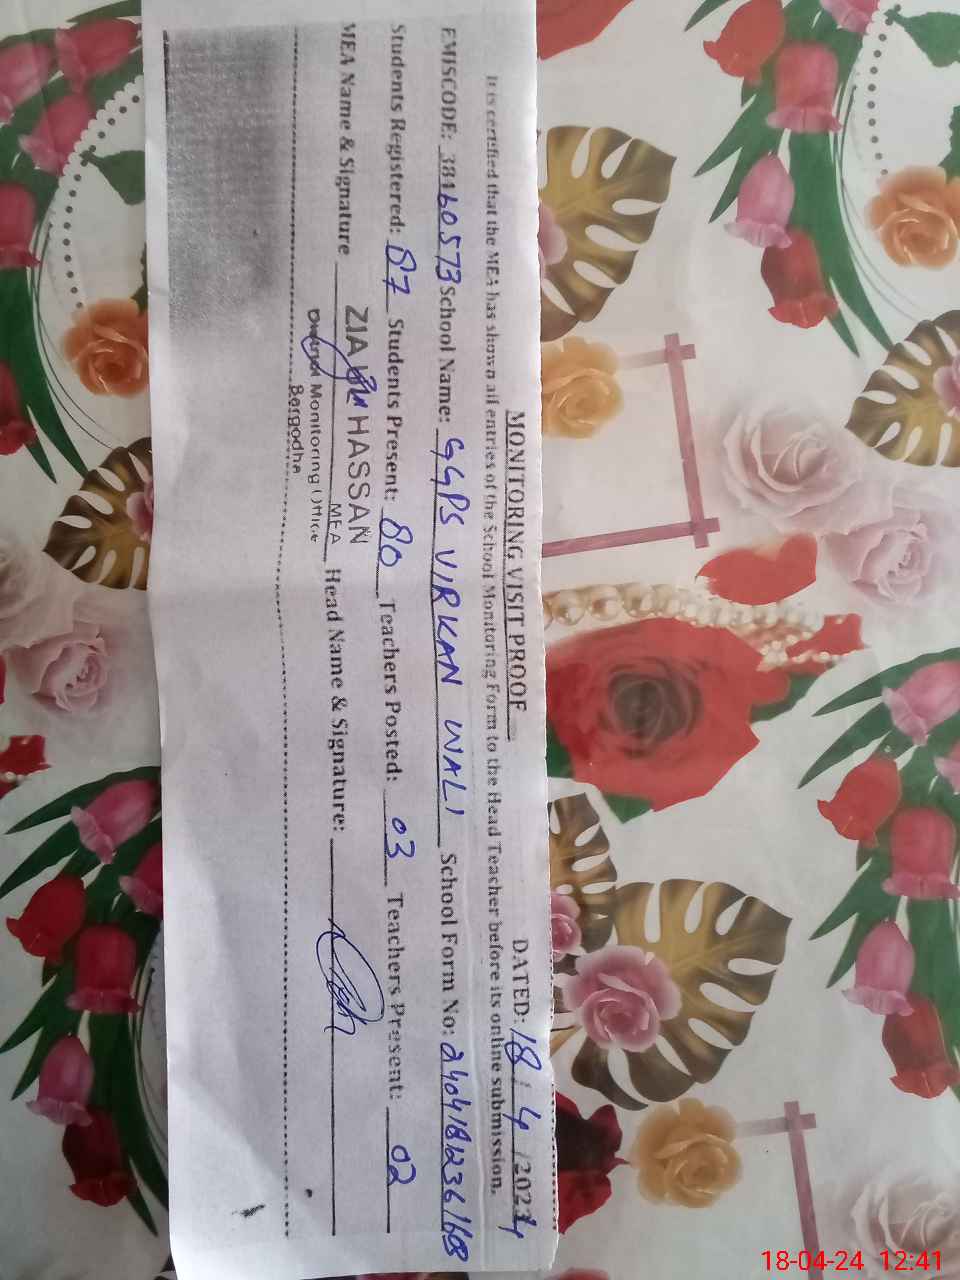 MONITORING VISIT PROOF DATED: 18/4/2024
It is certified that the MEA has shown all entries of the School Monitoring Form to the Head Teacher before its online submission.
EMISCODE: 38460573 School Name: GGPS VIRKAN WALI School Form No:
Students Registered: 87 Students Present: 80 Teachers Posted: 03 Teachers Present: 02
ZIA HASSAN
MEA Name & Signature MEA Head Name & Signature:
Monitoring Office
Sargodha
18-04-24 12:41